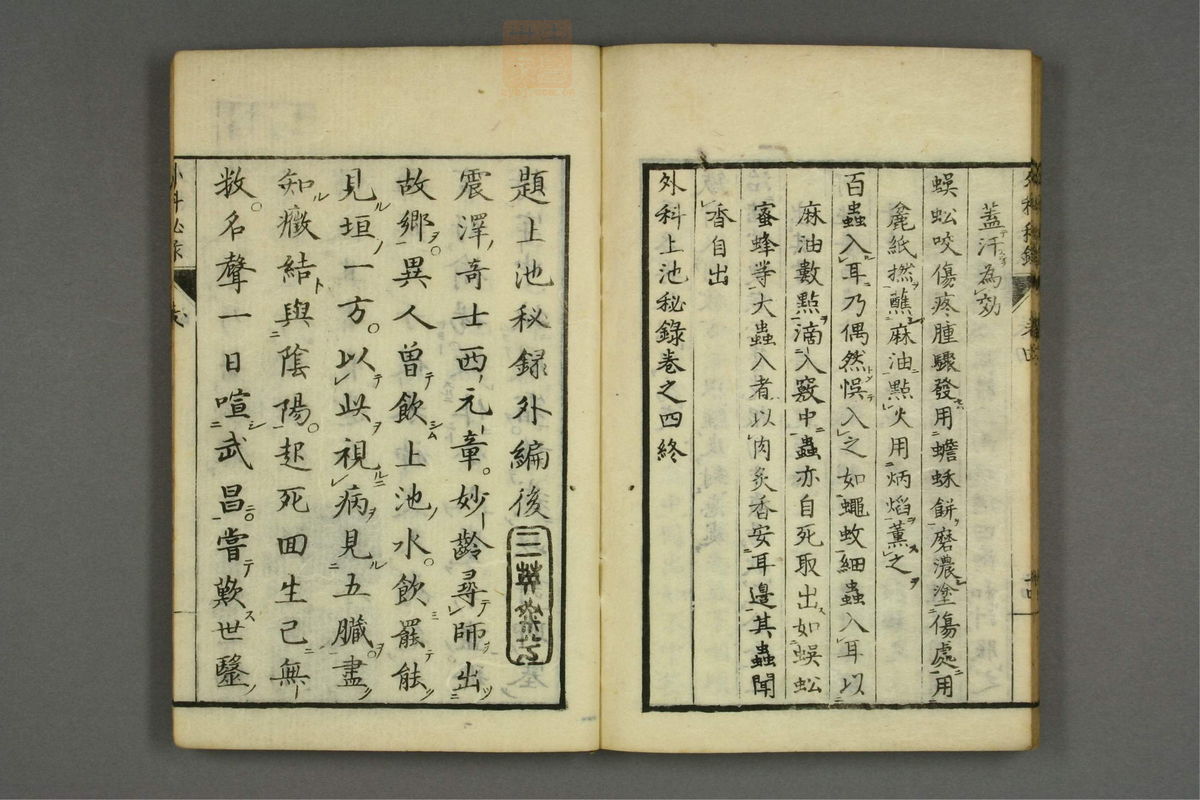 蓋汗為効
蜈蚣咬傷疼腫驟發用蟾蛛餅磨濃塗傷處用
麄紙撚蘸麻油點火用炳熖薰之
百蟲入耳乃偶然悞入之如蠅蚊細蟲入耳以
麻油數點滴入竅中蟲亦自死取出如蜈蚣
蜜蜂等大蟲入者以肉炙香安耳邊其蟲聞
香自出
外科上池秘錄卷之四終
題上池秘録外編後
震澤奇士西元章妙齡尋師出
故鄉異人曽飲上池水飲罷能
見垣一方以此視病見五臓盡
知癥結與陰陽起死回生已無
数名聲一日喧武昌嘗歎世毉